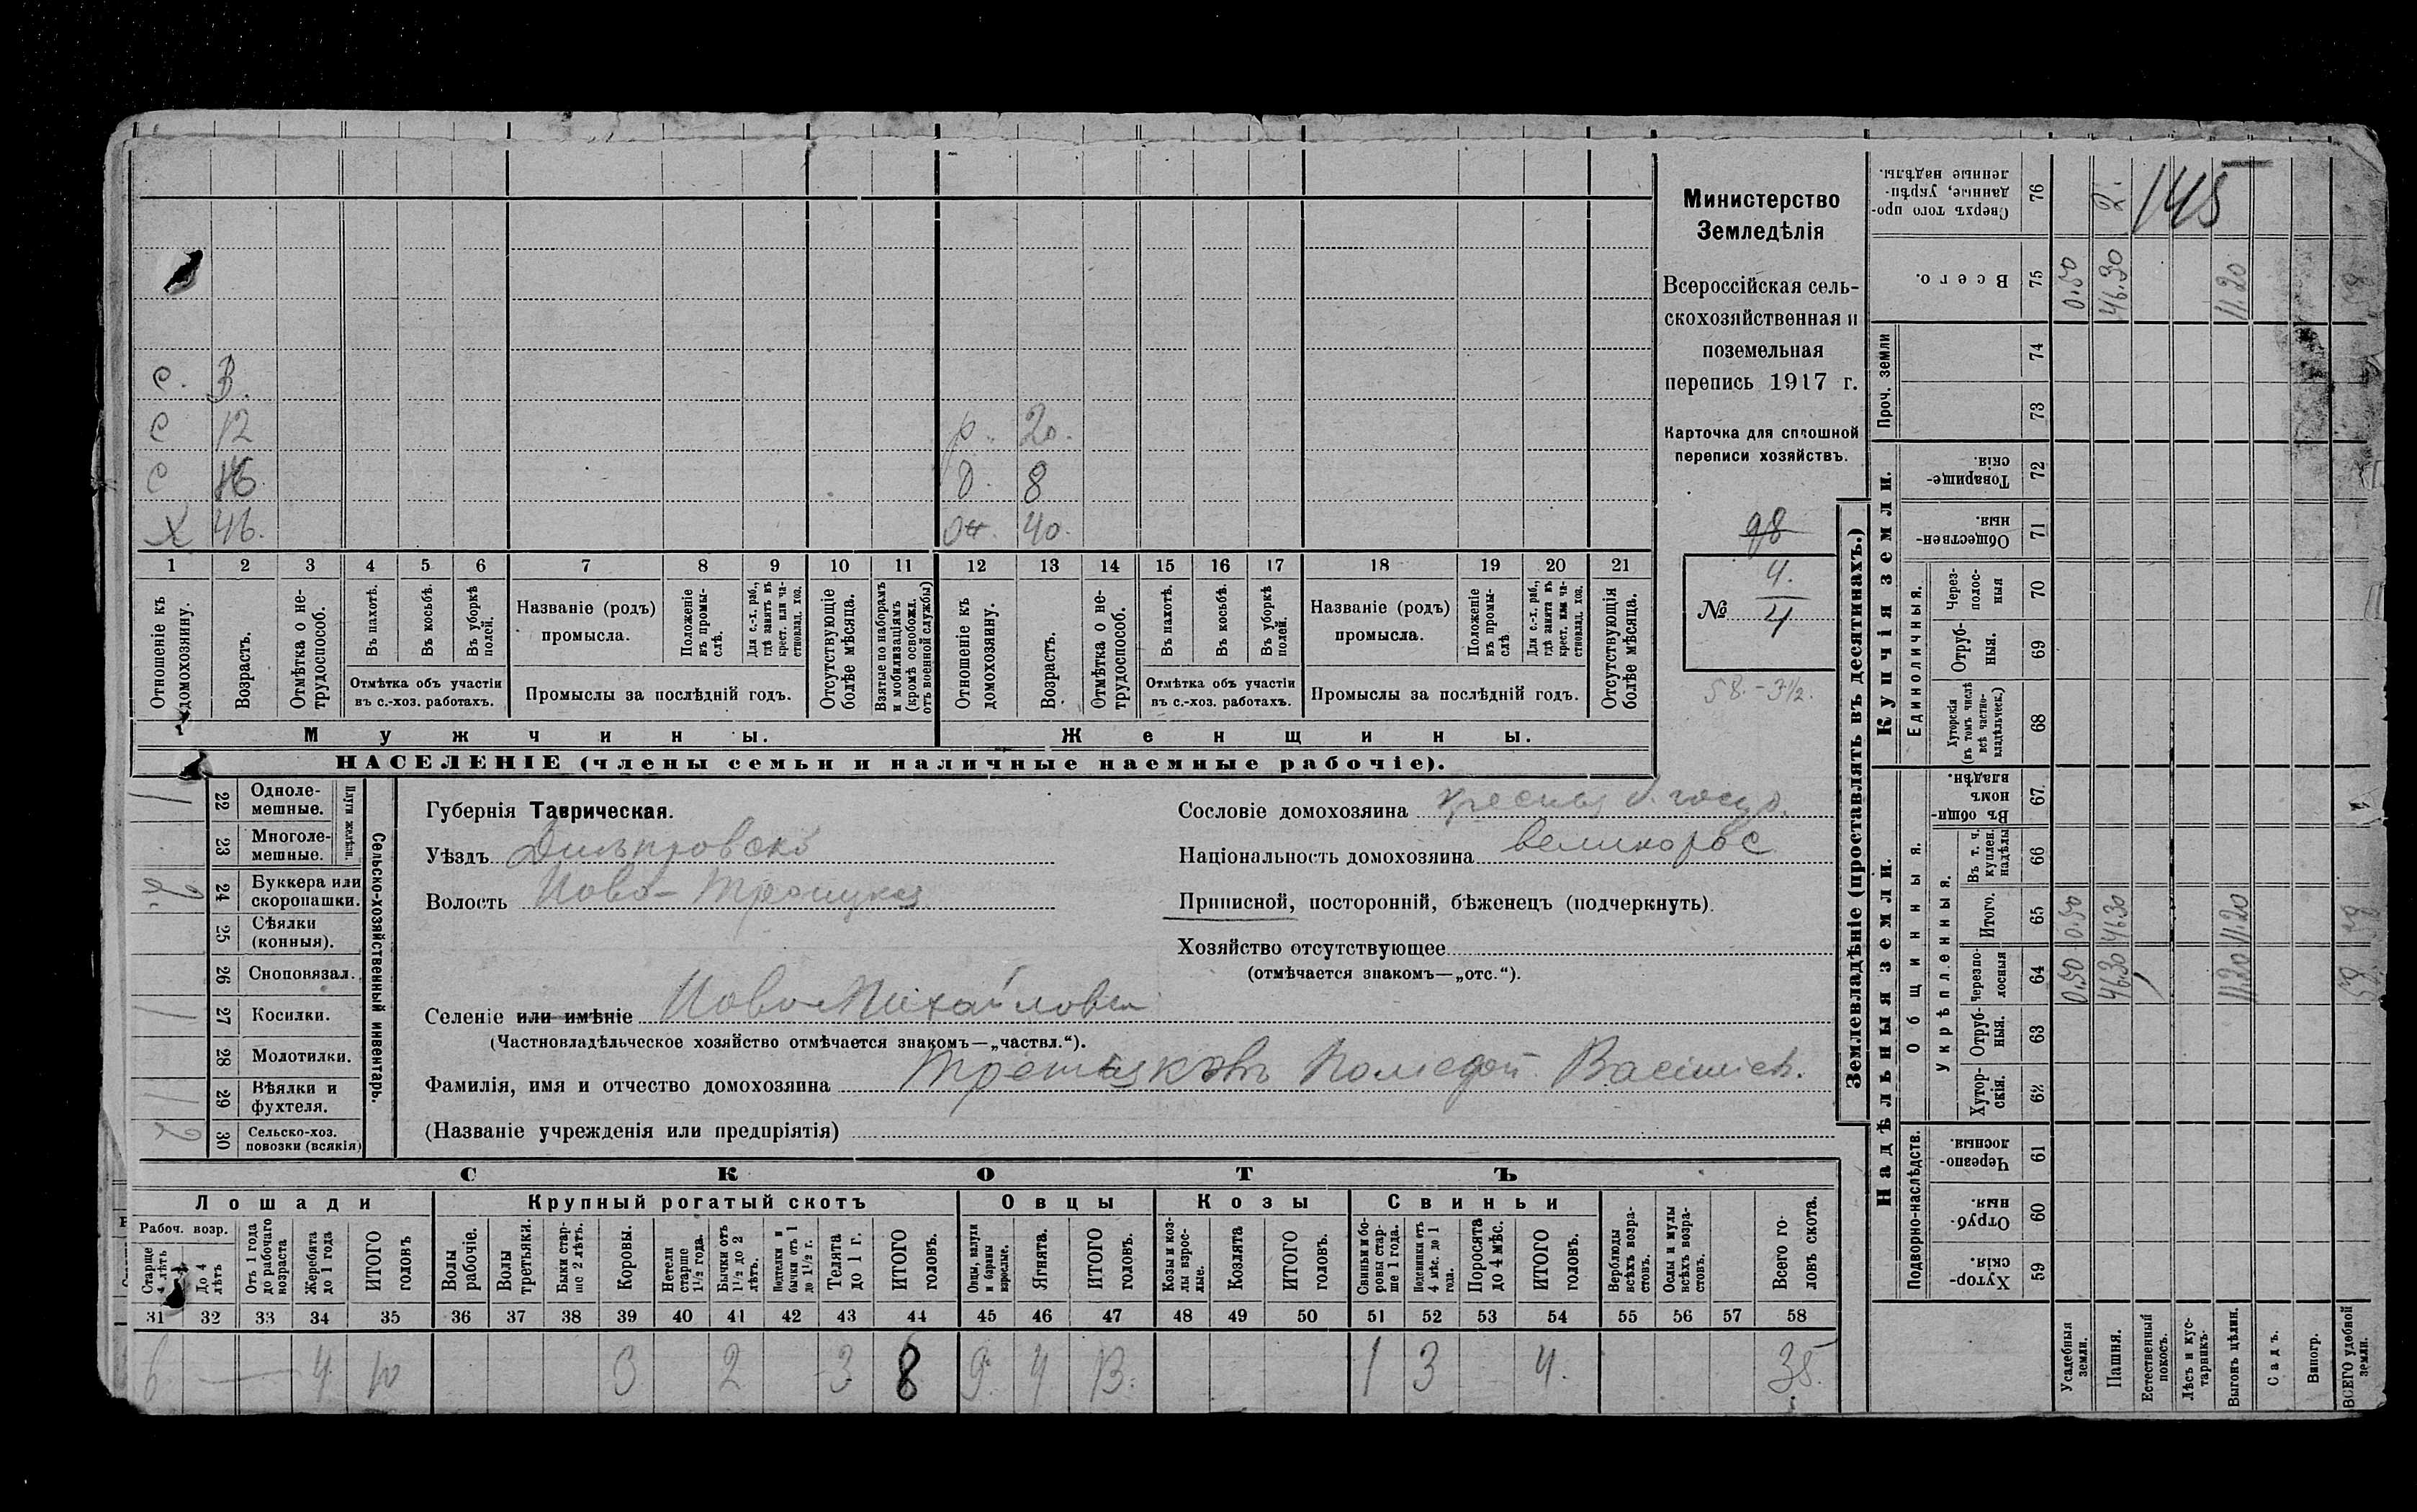 с. 3.
с 12 р. 20.
с 16. д. 8
х 46. ж. 40.
1 2 3 4 5 6 7 8 9 10 11 12 13 14 15 16 17 18 19 20 21
Отношеніе къ домохозяину.
Возрастъ.
Отмѣтка о нетрудоспособ.
Въ пахотѣ.
Въ косьбѣ.
Въ уборкѣ полей.
Отмѣтка объ участіи въ с.-хоз. работахъ.
Названіе (родъ) промысла.
Положеніе въ промыслѣ.
Для с.-х. раб., гдѣ занятъ въ крест. или частновлад. хоз.
Промыслы за послѣдній годъ.
Отсутствующіе болѣе мѣсяца.
Взятые по наборамъ и мобилизаціямъ (кромѣ освобожд. отъ военной службы)
Отношеніе къ домохозяину.
Возрастъ.
Отмѣтка о нетрудоспособ.
Въ пахотѣ.
Въ косьбѣ.
Въ уборкѣ полей.
Отмѣтка объ участіи въ с.-хоз. работахъ.
Названіе (родъ) промысла.
Положеніе въ промыслѣ.
Для с.-х. раб., гдѣ занята въ крест. или частновлад. хоз.
Промыслы за послѣдній годъ.
Отсутствующія болѣе мѣсяца.
Мужчины.
Женщины.
НАСЕЛЕНІЕ (члены семьи и наличные наемные рабочіе).
Министерство
Земледѣлія
Всероссійская сель-
скохозяйственная и
поземельная
перепись 1917 г.
Карточка для сплошной
переписи хозяйствъ.
98
4.
№ 4
58.-3½.
1 22 Однолемешные.
23 Многолемешные.
Плуги желѣзн.
2. 24 Буккера или скоропашки.
25 Сѣялки (конныя).
26 Сноповязал.
1 27 Косилки.
28 Молотилки.
1 29 Вѣялки и фухтеля.
2 30 Сельско-хоз. повозки (всякія)
Сельско-хозяйственный инвентарь.
Губернія Таврическая.
Уѣздъ Днѣпровскій
Волость Ново-Троицкая
Сословіе домохозяина
Національность домохозяина великоросс
Приписной, посторонній, бѣженецъ (подчеркнуть).
Хозяйство отсутствующее
(отмѣчается знакомъ—„отс.“).
Селеніе или имѣніе Ново-Михайловка
(Частновладѣльческое хозяйство отмѣчается знакомъ—„частвл.“).
Фамилія, имя и отчество домохозяина Третьяковъ
(Названіе учрежденія или предпріятія)
СКОТЪ
Лошади Крупный рогатый скотъ Овцы Козы Свиньи
Рабоч. возр.
Старше 4 лѣтъ
До 4 лѣтъ
Отъ 1 года до рабочаго возраста
Жеребята до 1 года
ИТОГО головъ
Волы рабочіе.
Волы третьяки.
Быки старше 2 лѣтъ.
Коровы.
Нетели старше 1½ года.
Бычки отъ 1½ до 2 лѣтъ.
Подтелки и бычки отъ 1 до 1½ г.
Телята до 1 г.
ИТОГО головъ.
Овцы, валухи и бараны взрослые.
Ягнята.
ИТОГО головъ.
Козы и козлы взрослые.
Козлята
ИТОГО головъ.
Свиньи и боровы старше 1 года.
Подсвинки отъ 4 мѣс. до 1 года.
Поросята до 4 мѣс.
ИТОГО головъ.
Верблюды всѣхъ возрастовъ.
Ослы и мулы всѣхъ возрастовъ.
Всего головъ скота.
31 32 33 34 35 36 37 38 39 40 41 42 43 44 45 46 47 48 49 50 51 52 53 54 55 56 57 58
6 — 4 10 3 2 3 8 9. 4 13. 1 3 4. 35.
Землевладѣніе (проставлять въ десятинахъ.)
Купчія земли.
Надѣльныя земли.
Проч. земли
Единоличныя.
Общинныя.
Укрѣпленныя.
Подворно-наслѣдств.
Сверхъ того проданные, укрѣпленные надѣлы. 76 2.
145
Всего. 75 0.50 46.30 11.20 58
74
73
Товарищескія. 72
Общественныя. 71
Черезполосныя 70
Отрубныя. 69
Хуторскія (въ томъ числѣ всѣ частновладѣльческ.) 68
Въ общинномъ владѣн. 67
Въ т. ч. куплен. надѣлы 66
Итого. 65 0.50 46.30 11.20 58
Черезполосныя 64 0.50 46.30 11.20 58
Отрубныя. 63
Хуторскія. 62
Черезполосныя. 61
Отрубныя. 60
Хуторскія. 59
Усадебныя земли.
Пашня.
Естественный покосъ.
Лѣсъ и кустарникъ.
Выгонъ цѣлин.
Садъ.
Виногр.
ВСЕГО удобной земли.